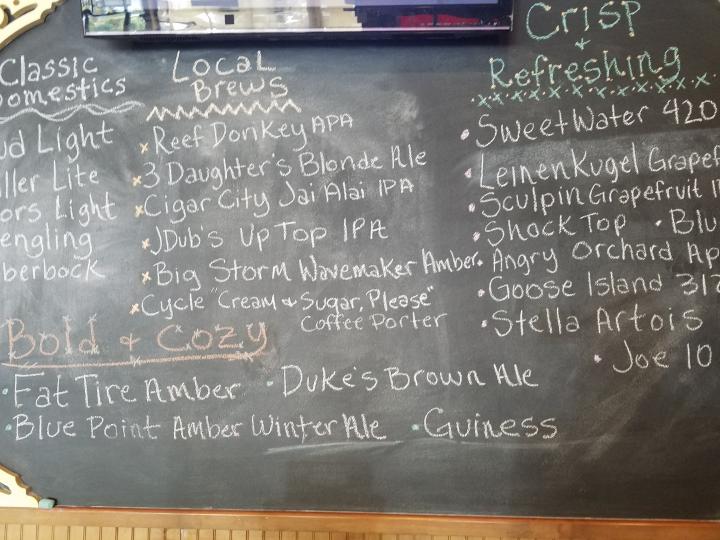 Classic
Domestics
ud Light
ller Lite
ors Light
engling
berbock
Local
Brews
Reef Donkey APA
3 Daughter's Blonde Ale
Cigar City Jai Alai IPA
JDub's Up Top IPA
Big Storm Wavemaker Amber
Cycle "Cream & Sugar, Please"
Coffee Porter
Crisp
+
Refreshing
SweetWater 420
Leinenkugel Grapef
Sculpin Grapefruit I
Shock Top • Blu
Angry Orchard Ap
Goose Island 312
Stella Artois
Joe 10
Bold & Cozy
Fat Tire Amber • Duke's Brown Ale
Blue Point Amber Winter Ale • Guiness